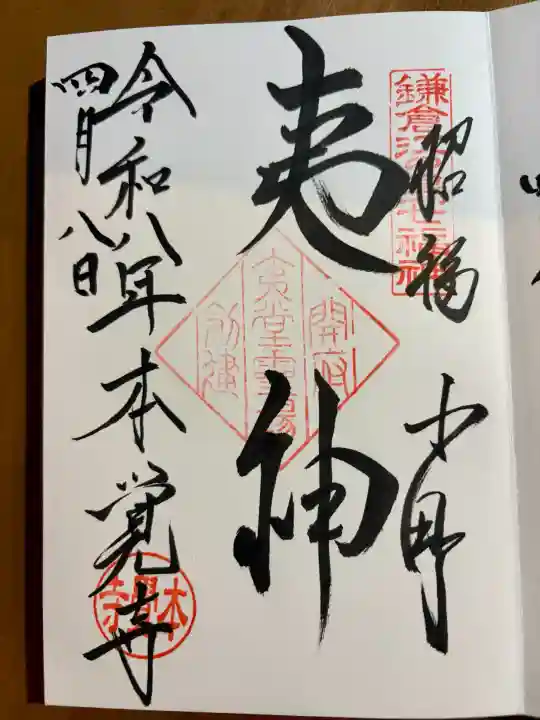 鎌倉
七福神
招福
小町
夷神
開府
夷堂霊場
創建
令和八年
四月八日
本覚寺
本覺寺